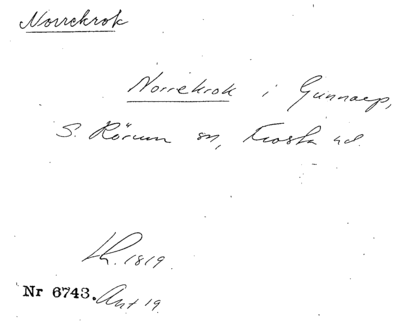 Norrekrok
Norrekrok i Gunnarp,
S. Rörum sn, Frosta hd.
Lh. 1819.
Nr 6743. Ant 19.